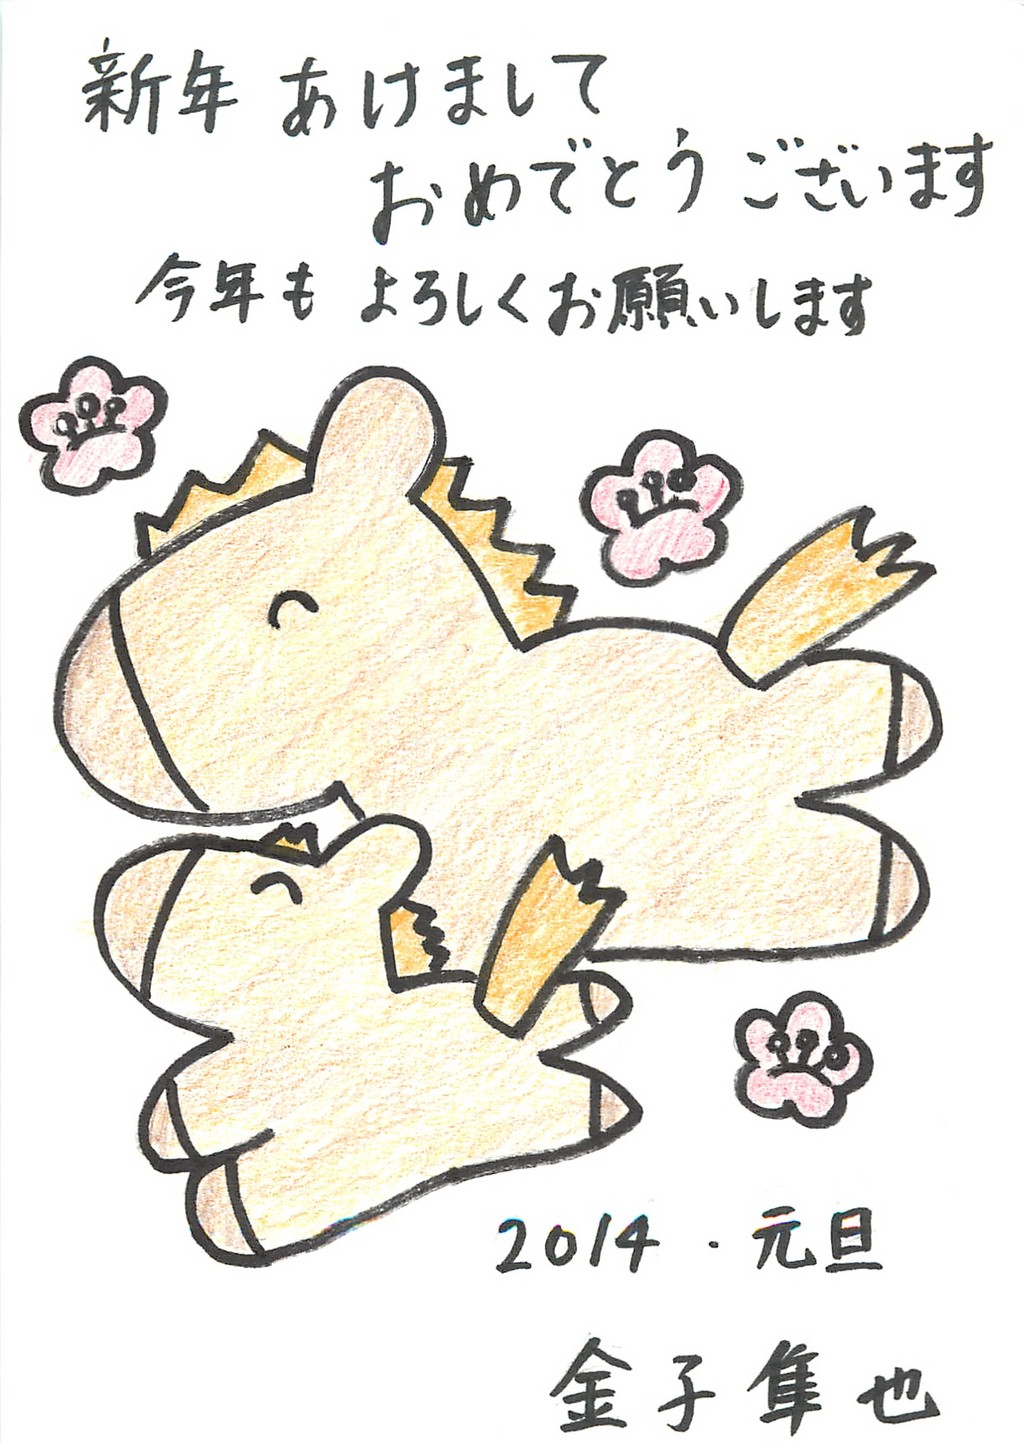 新年 あけまして
おめでとうございます
今年も よろしくお願いします
2014.元旦
金子隼也